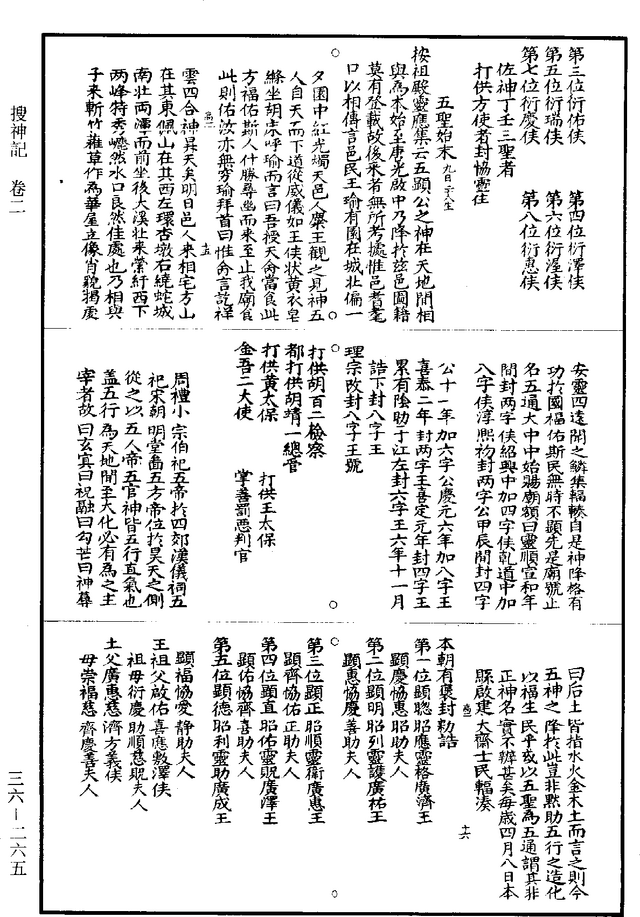 第三位衍佑侯　第四位衍澤侯
第五位衍瑞侯　第六位衍渥侯
第七位衍慶侯　第八位衍惠侯
佐神丁壬三聖者
打供方使者封協靈住
五聖始末 九月二十八生
按祖殿靈應集云五顯公之神在天地間相
與為本始至唐光啟中乃降於茲邑圖籍
莫有登載故後來者無所考據惟邑耆耄
口以相傳言邑民王瑜有園在城北偏一
夕園中紅光燭天邑人麇至觀之見神五
人自天而下道從威儀如王侯狀黃衣皂
絛坐胡床呼瑜而言曰吾授天命當食此
方福佑斯人什勝尋幽而來至止我廟食
此則佑汝亦無旁瑜拜首曰惟命言訖祥
十五
雲四合神昇天矣明日邑人來相宅方山
在其東佩山在其西左環杏墩右繞蛇城
南北兩潭而前坐後大溪北來縈紆西下
兩峰特秀巉然水口良然佳處也乃相與
子來斬竹薙草作為華屋立像肖貌揭虔
安靈四遠聞之鱗集輻輳自是神降格有
功於國福佑斯民無時不顯先是廟號止
名五通大中中始賜廟額曰靈順宣和年
間封兩字侯紹興中加四字侯乾道中加
八字侯淳熙初封兩字公甲辰間封四字
公十一年加六字公慶元六年加八字王
喜泰二年封兩字王喜定元年封四字王
累有陰助于江左封六字王六年十一月
誥下封八字王
理宗改封八字王號
打供胡百二檢察
都打供胡靖一總管
打供黃太保　打供王太保
金吾二大使　掌善罰惡判官
周禮小宗伯祀五帝於四郊漢儀祠五
祀宋朝明堂畫五方帝位於昊天之側
從之以五人帝五官神皆五行直氣也
蓋五行為天地間至大化必有為之主
宰者故曰玄冥曰祝融曰勾芒曰神蓐
曰后土皆指水火金木土而言之則今
五神之降於此豈非默助五行之造化
以福生民乎或以五聖為五通謂其非
正神名實不辨甚矣每歲四月八日本
縣啟建大齋士民輻湊
十六
本朝有褒封勑誥
第一位顯聰昭應靈格廣濟王
顯慶協惠昭助夫人
第二位顯明昭列靈護廣祐王
顯惠協慶善助夫人
第三位顯正昭順靈衛廣惠王
顯齊協佑正助夫人
第四位顯直昭佑靈貺廣澤王
顯佑協齊喜助夫人
第五位顯德昭利靈助廣成王
顯福協愛靜助夫人
王祖父啟佑喜應敷澤侯
祖母衍慶助順慈貺夫人
土父廣惠慈濟方義侯
母崇福慈齊慶善夫人
搜神記　卷二
三六—二六五